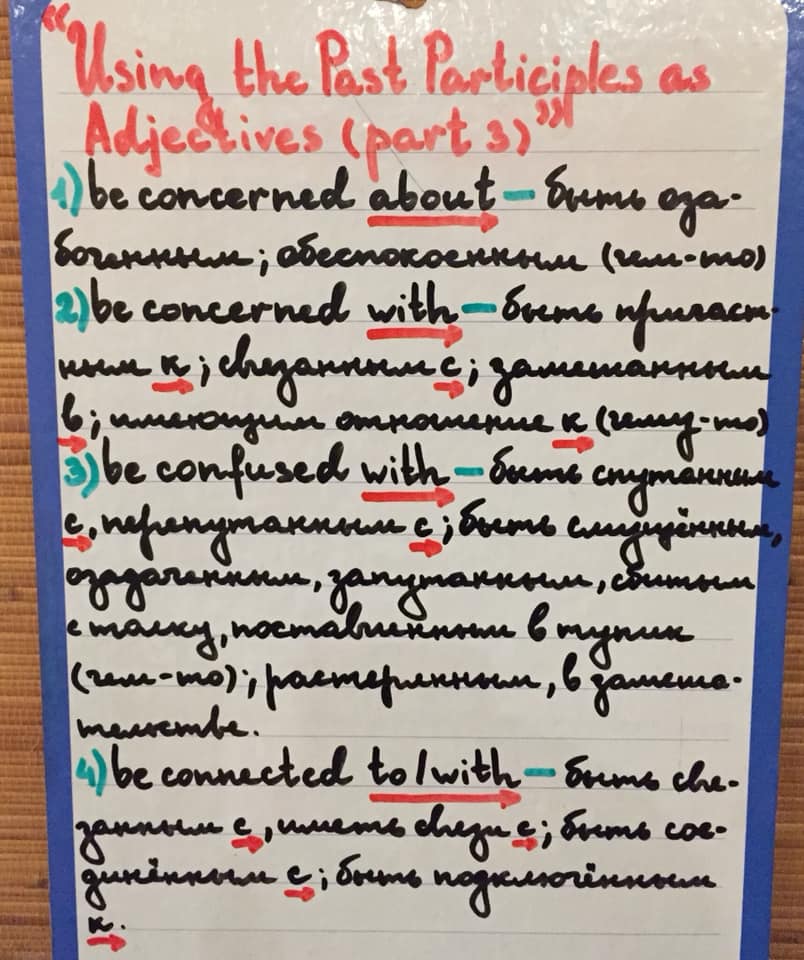 "Using the Past Participles as
Adjectives (part 3)"
1) be concerned about – быть оза-
боченным; обеспокоенным (чем-то)
2) be concerned with – быть причаст-
ным к; связанным с; замешанным
в; имеющим отношение к (чему-то)
3) be confused with – быть спутанным
с, перепутанным с; быть смущённым,
озадаченным, запутанным, сбитым
с толку, поставленным в тупик
(чем-то); растерянным, в замеша-
тельстве.
4) be connected to/with – быть свя-
занным с, иметь связи с; быть сое-
динённым с; быть подключённым
к.